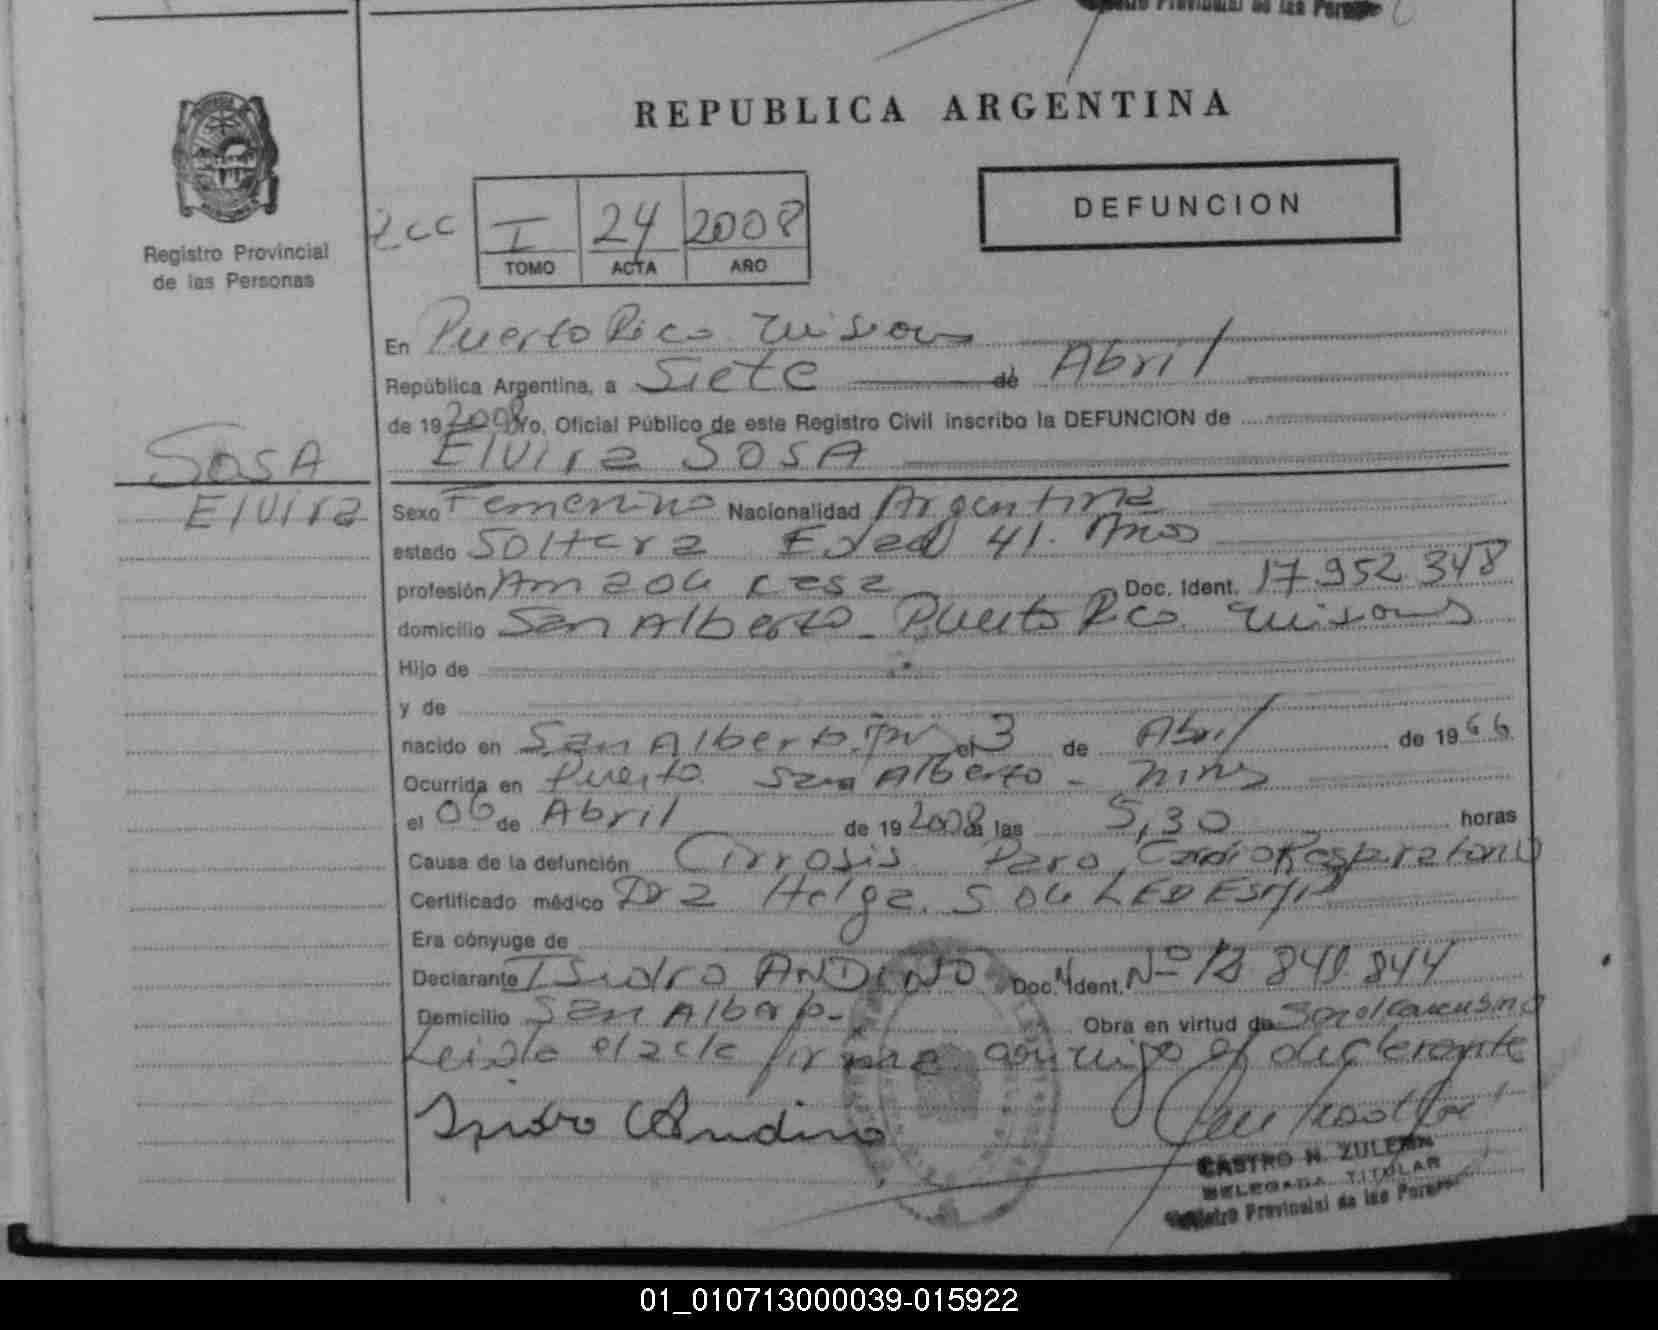 Registro Provincial de las Personas
REPUBLICA ARGENTINA
2cc
I 24 2008
TOMO ACTA AÑO
DEFUNCION
Registro Provincial
de las Personas
En Puerto Rico Misiones
República Argentina, a Siete de Abril
de 19 2008 Yo, Oficial Público de este Registro Civil inscribo la DEFUNCION de
Elvira SOSA
SOSA
Elvira
Sexo Femenino Nacionalidad Argentina
estado Soltera Edad 41. Años
profesión Ama de casa Doc. Ident. 17.952.348
domicilio San Alberto - Puerto Rico Misiones
Hijo de
y de
nacido en San Alberto. el 3 de Abril de 19 66
Ocurrida en Puerto San Alberto - Mnes
el 06 de Abril de 19 2008 a las 5,30 horas
Causa de la defunción Cirrosis Paro CardioRespiratorio
Certificado médico Dra Helga
Era cónyuge de
Declarante Isidro ANDINO Doc. Ident. Nº 841.844
Domicilio San Alberto - Obra en virtud de
Leida el acta firma conmigo el declarante
Isidro Andino
CASTRO N. ZULEMA
DELEGADA TITULAR
Registro Provincial de las Personas
01_010713000039-015922